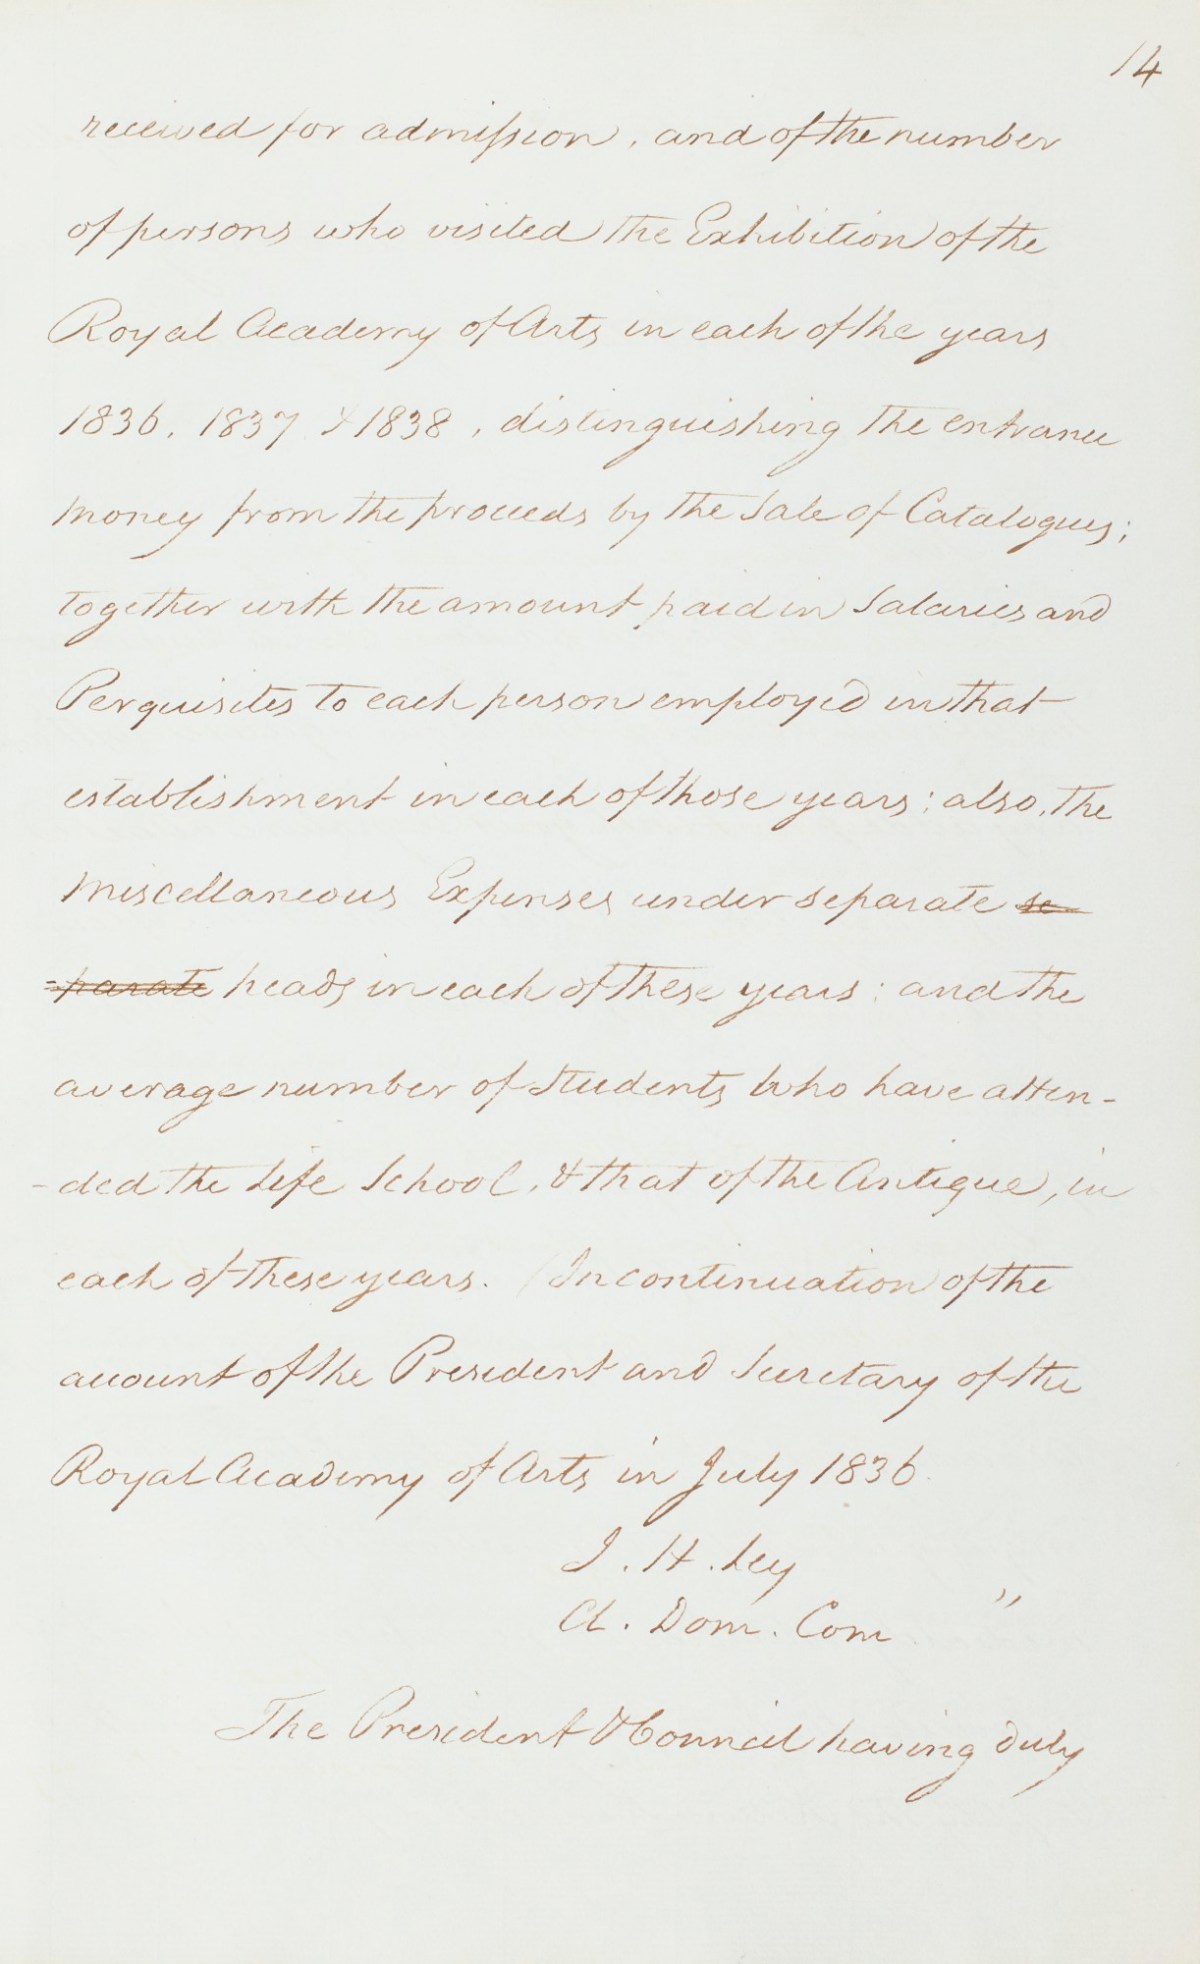 14
received for admission, and of the number
of persons who visited the Exhibition of the
Royal Academy of Arts in each of the years
1836, 1837 & 1838, distinguishing the entrance
money from the proceeds by the Sale of Catalogues;
together with the amount paid in Salaries and
Perquisites to each person employed in that
establishment in each of those years; also, the
Miscellaneous Expenses under separate se
=parate heads in each of these years: and the
average number of Students who have atten-
-ded the Life School, & that of the Antique, in
each of these years. (In continuation of the
account of the President and Secretary of the
Royal Academy of Arts in July 1836.
J. H. Ley
Cl. Dom. Com "
The President & Council having duly